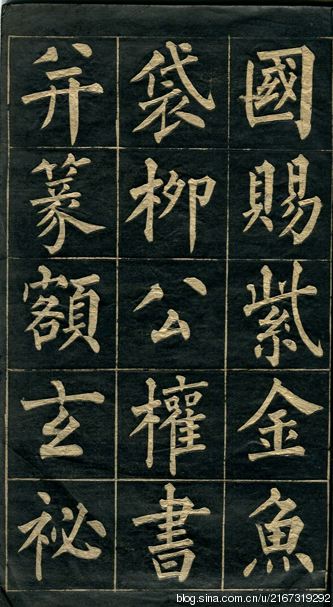 國賜紫金魚
袋柳公權書
并篆額玄祕
blog.sina.com.cn/u/2167319292